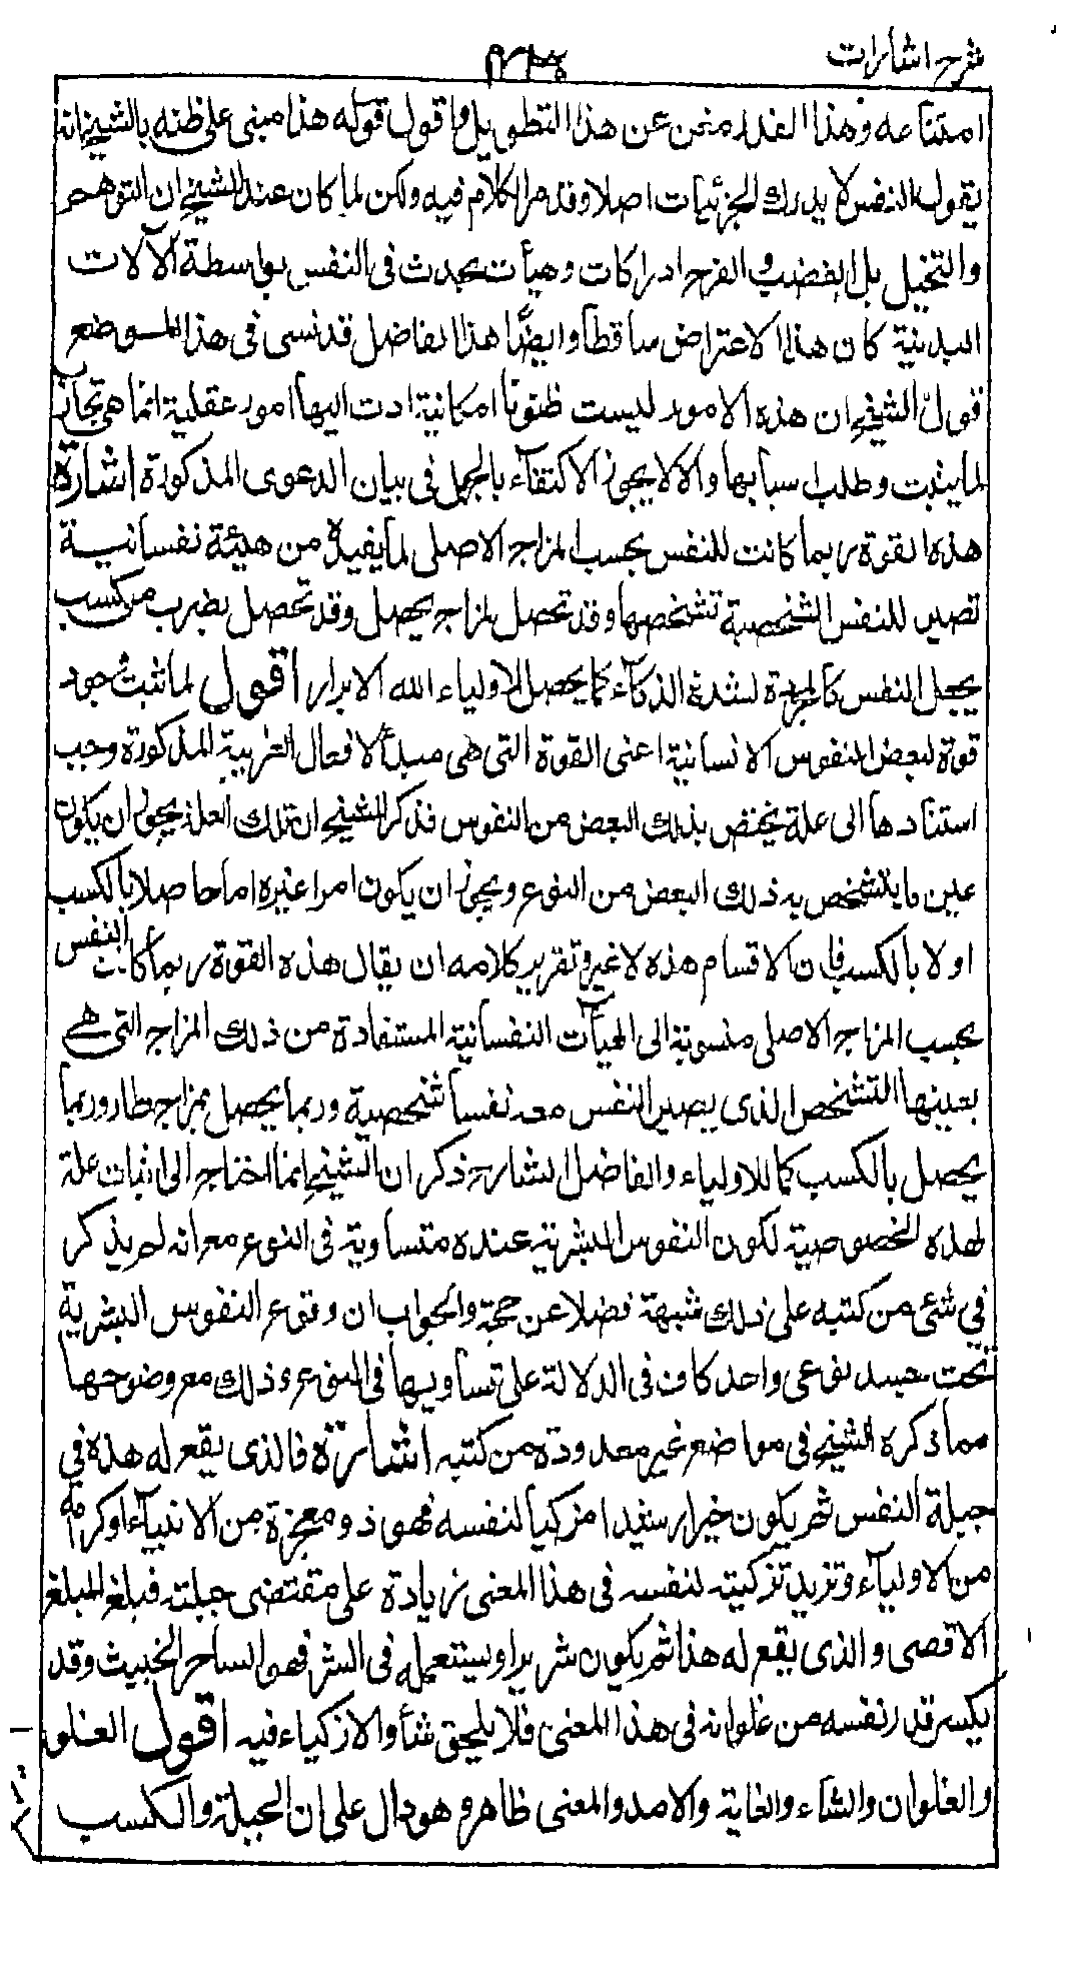 شرح اشارات
امتناعه وهذا القدر مغن عن هذا التطويل واقول قوله هذا مبنى على ظنه بالشيخ انه
يقول النفس لا يدرك الجزئيات اصلا وقد مر الكلام فيه ولكن لما كان عند الشيخ ان التوهم
والتخيل بل الغضب والفرح ادراكات وهيأت يحدث فى النفس بواسطة الآلات
البدنية كان هذا الاعتراض ساقطا وايضا هذا الفاضل قد نسى فى هذا الموضع
قول الشيخ ان هذه الامور ليست ظنونا امكانية ادت اليها امور عقلية انما هى تجارب
لما يثبت وطلب اسبابها والا لا يجوز الاكتفاء بالجمل فى بيان الدعوى المذكورة اشارة
هذه القوة ربما كانت للنفس بحسب المزاج الاصلى لما يفيده من هيئة نفسانية
تصير للنفس الشخصية تشخصها وقد تحصل لمزاج يحصل وقد تحصل بضرب من كسب
يجعل النفس كالمجردة لشدة الذكاء كما يحصل لاولياء الله الابرار اقول لما ثبت وجود
قوة لبعض النفوس الانسانية اعنى القوة التى هى مبدأ الافعال الغريبة المذكورة وجب
استنادها الى علة يختص بذلك البعض من النفوس فذكر الشيخ ان تلك العلة يجوز ان يكون
عين ما يتشخص به ذلك البعض من النوع ويجوز ان يكون امرا غيره اما حاصلا بالكسب
او لا بالكسب فان الاقسام هذه لا غير وتقرير كلامه ان يقال هذه القوة ربما كانت النفس
بحسب المزاج الاصلى منسوبة الى الهيآت النفسانية المستفادة من ذلك المزاج التى هى
بعينها التشخص الذى يصير النفس معه نفسا شخصية وربما يحصل بمزاج طار وربما
يحصل بالكسب كما للاولياء والفاضل الشارح ذكر ان الشيخ انما احتاج الى اثبات علة
لهذه الخصوصية لكون النفوس البشرية عنده متساوية فى النوع مع انه لم يذكر
في شئ من كتبه على ذلك شبهة فضلا عن حجة والجواب ان وقوع النفوس البشرية
تحت حد نوعى واحد كاف فى الدلالة على تساويها فى النوع وذلك مع وضوحها
مما ذكره الشيخ فى مواضع غير معدودة من كتبه اشارة فالذى يقع له هذه في
جبلة النفس ثم يكون خيرا رشيدا مزكيا لنفسه فهو ذو معجزة من الانبياء او كرامة
من الاولياء وتزيده تزكيته لنفسه فى هذا المعنى زيادة على مقتضى جبلته فبلغ المبلغ
الاقصى والذى يقع له هذا ثم يكون شريرا ويستعمله فى الشر فهو الساحر الخبيث وقد
يكسر قدر نفسه من غلوانه فى هذا المعنى فلا يلحق شأو الازكياء فيه اقول الغلو
والغلوان والشاء والغاية والامد والمعنى ظاهر وهو دال على ان الجبلة والكسب